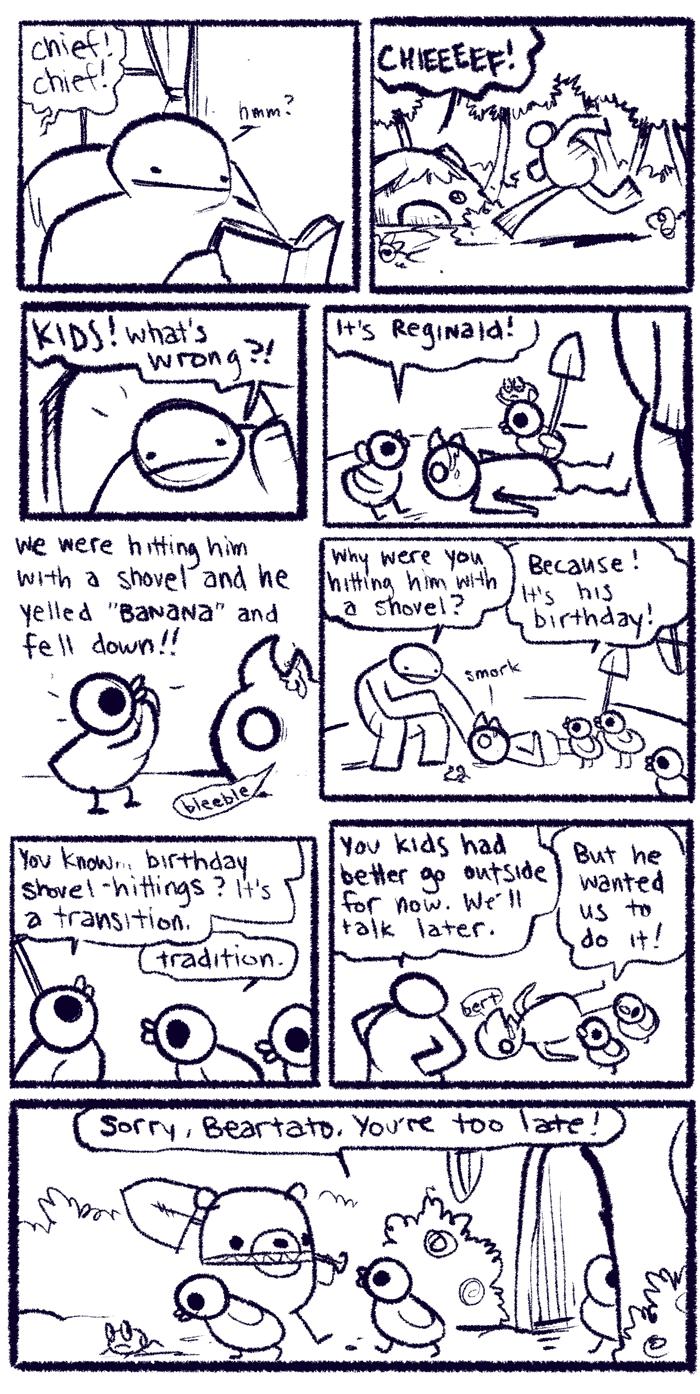 chief!
chief!
hmm?
CHIEEEEF!
KIDS! What's
wrong?!
It's Reginald!
We were hitting him
with a shovel and he
yelled "BANANA" and
fell down!!
bleeble
Why were you
hitting him with
a shovel?
Because!
It's his
birthday!
smork
You know... birthday
shovel-hittings? It's
a transition.
tradition.
You kids had
better go outside
for now. We'll
talk later.
But he
wanted
us to
do it!
bert
Sorry, Beartato. You're too late!